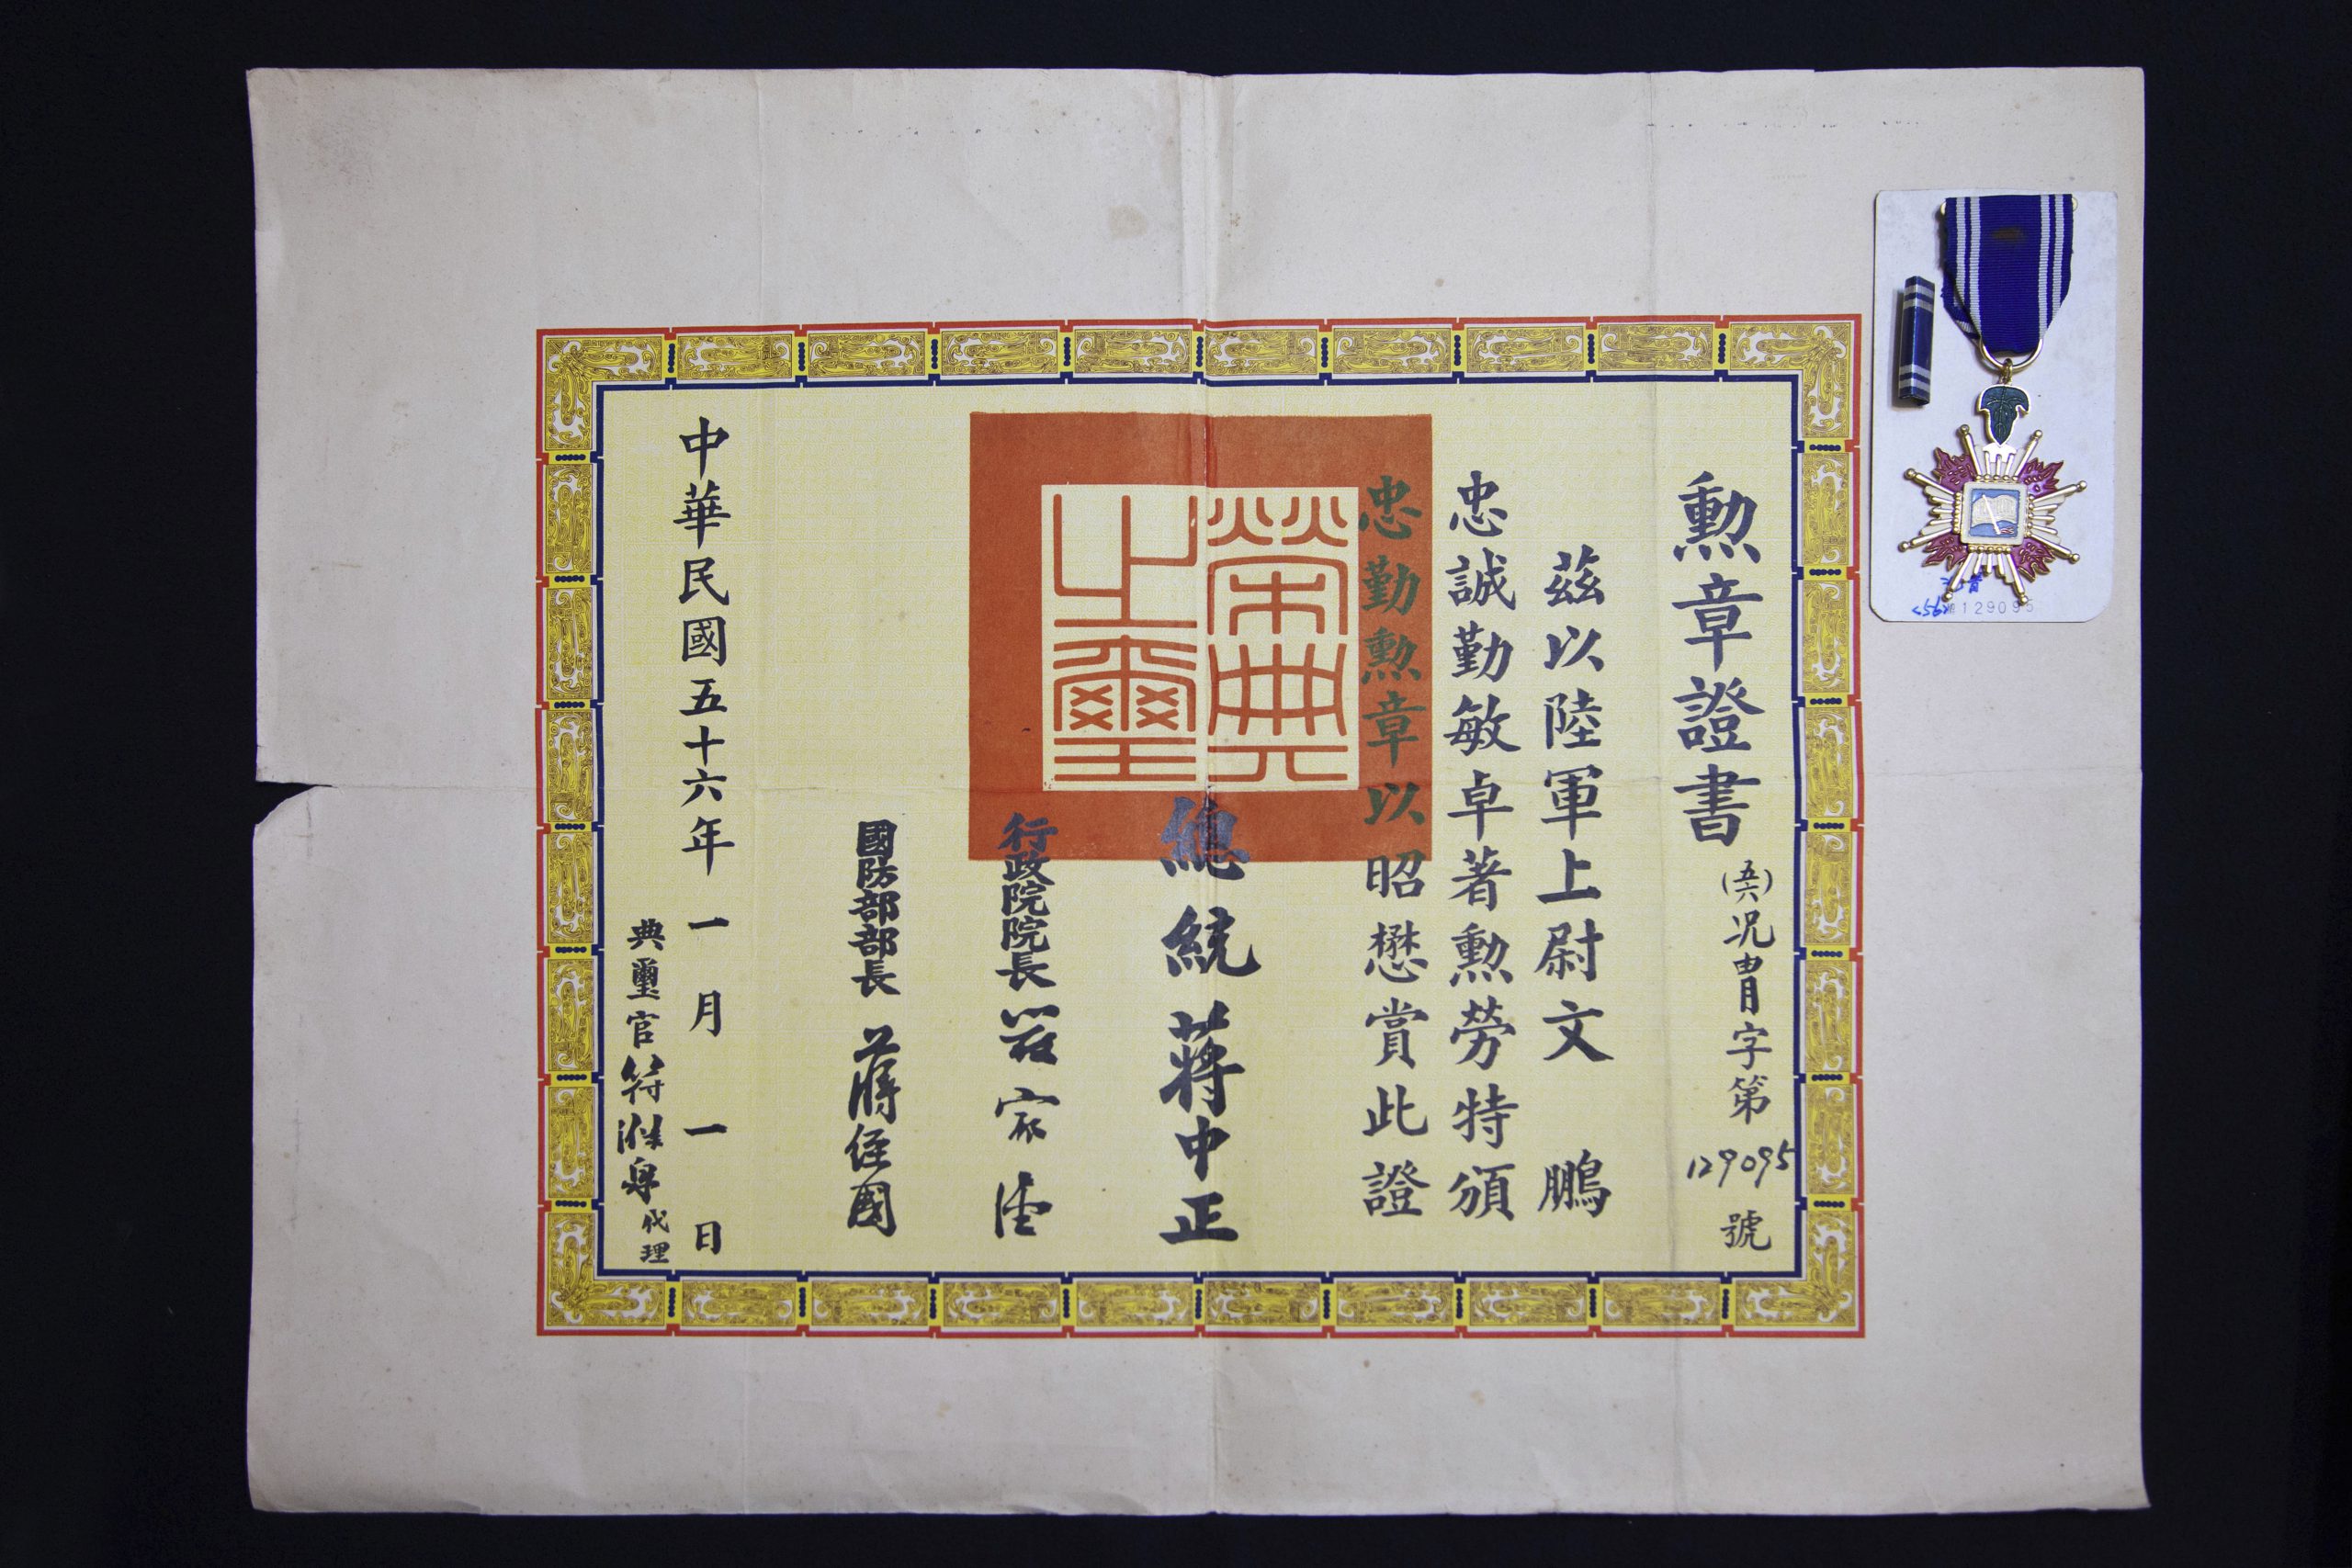 勲章證書
(五六)況胄字第129095號
茲以陸軍上尉文鵬
忠誠勤敏卓著勲勞特頒
忠勤勲章以昭懋賞此證
榮典之璽
總統蔣中正
行政院院長嚴家淦
國防部部長蔣經國
中華民國五十六年一月一日
典璽官符滌泉代理
129095